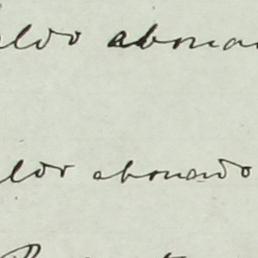 eldo abona
eldo abonado